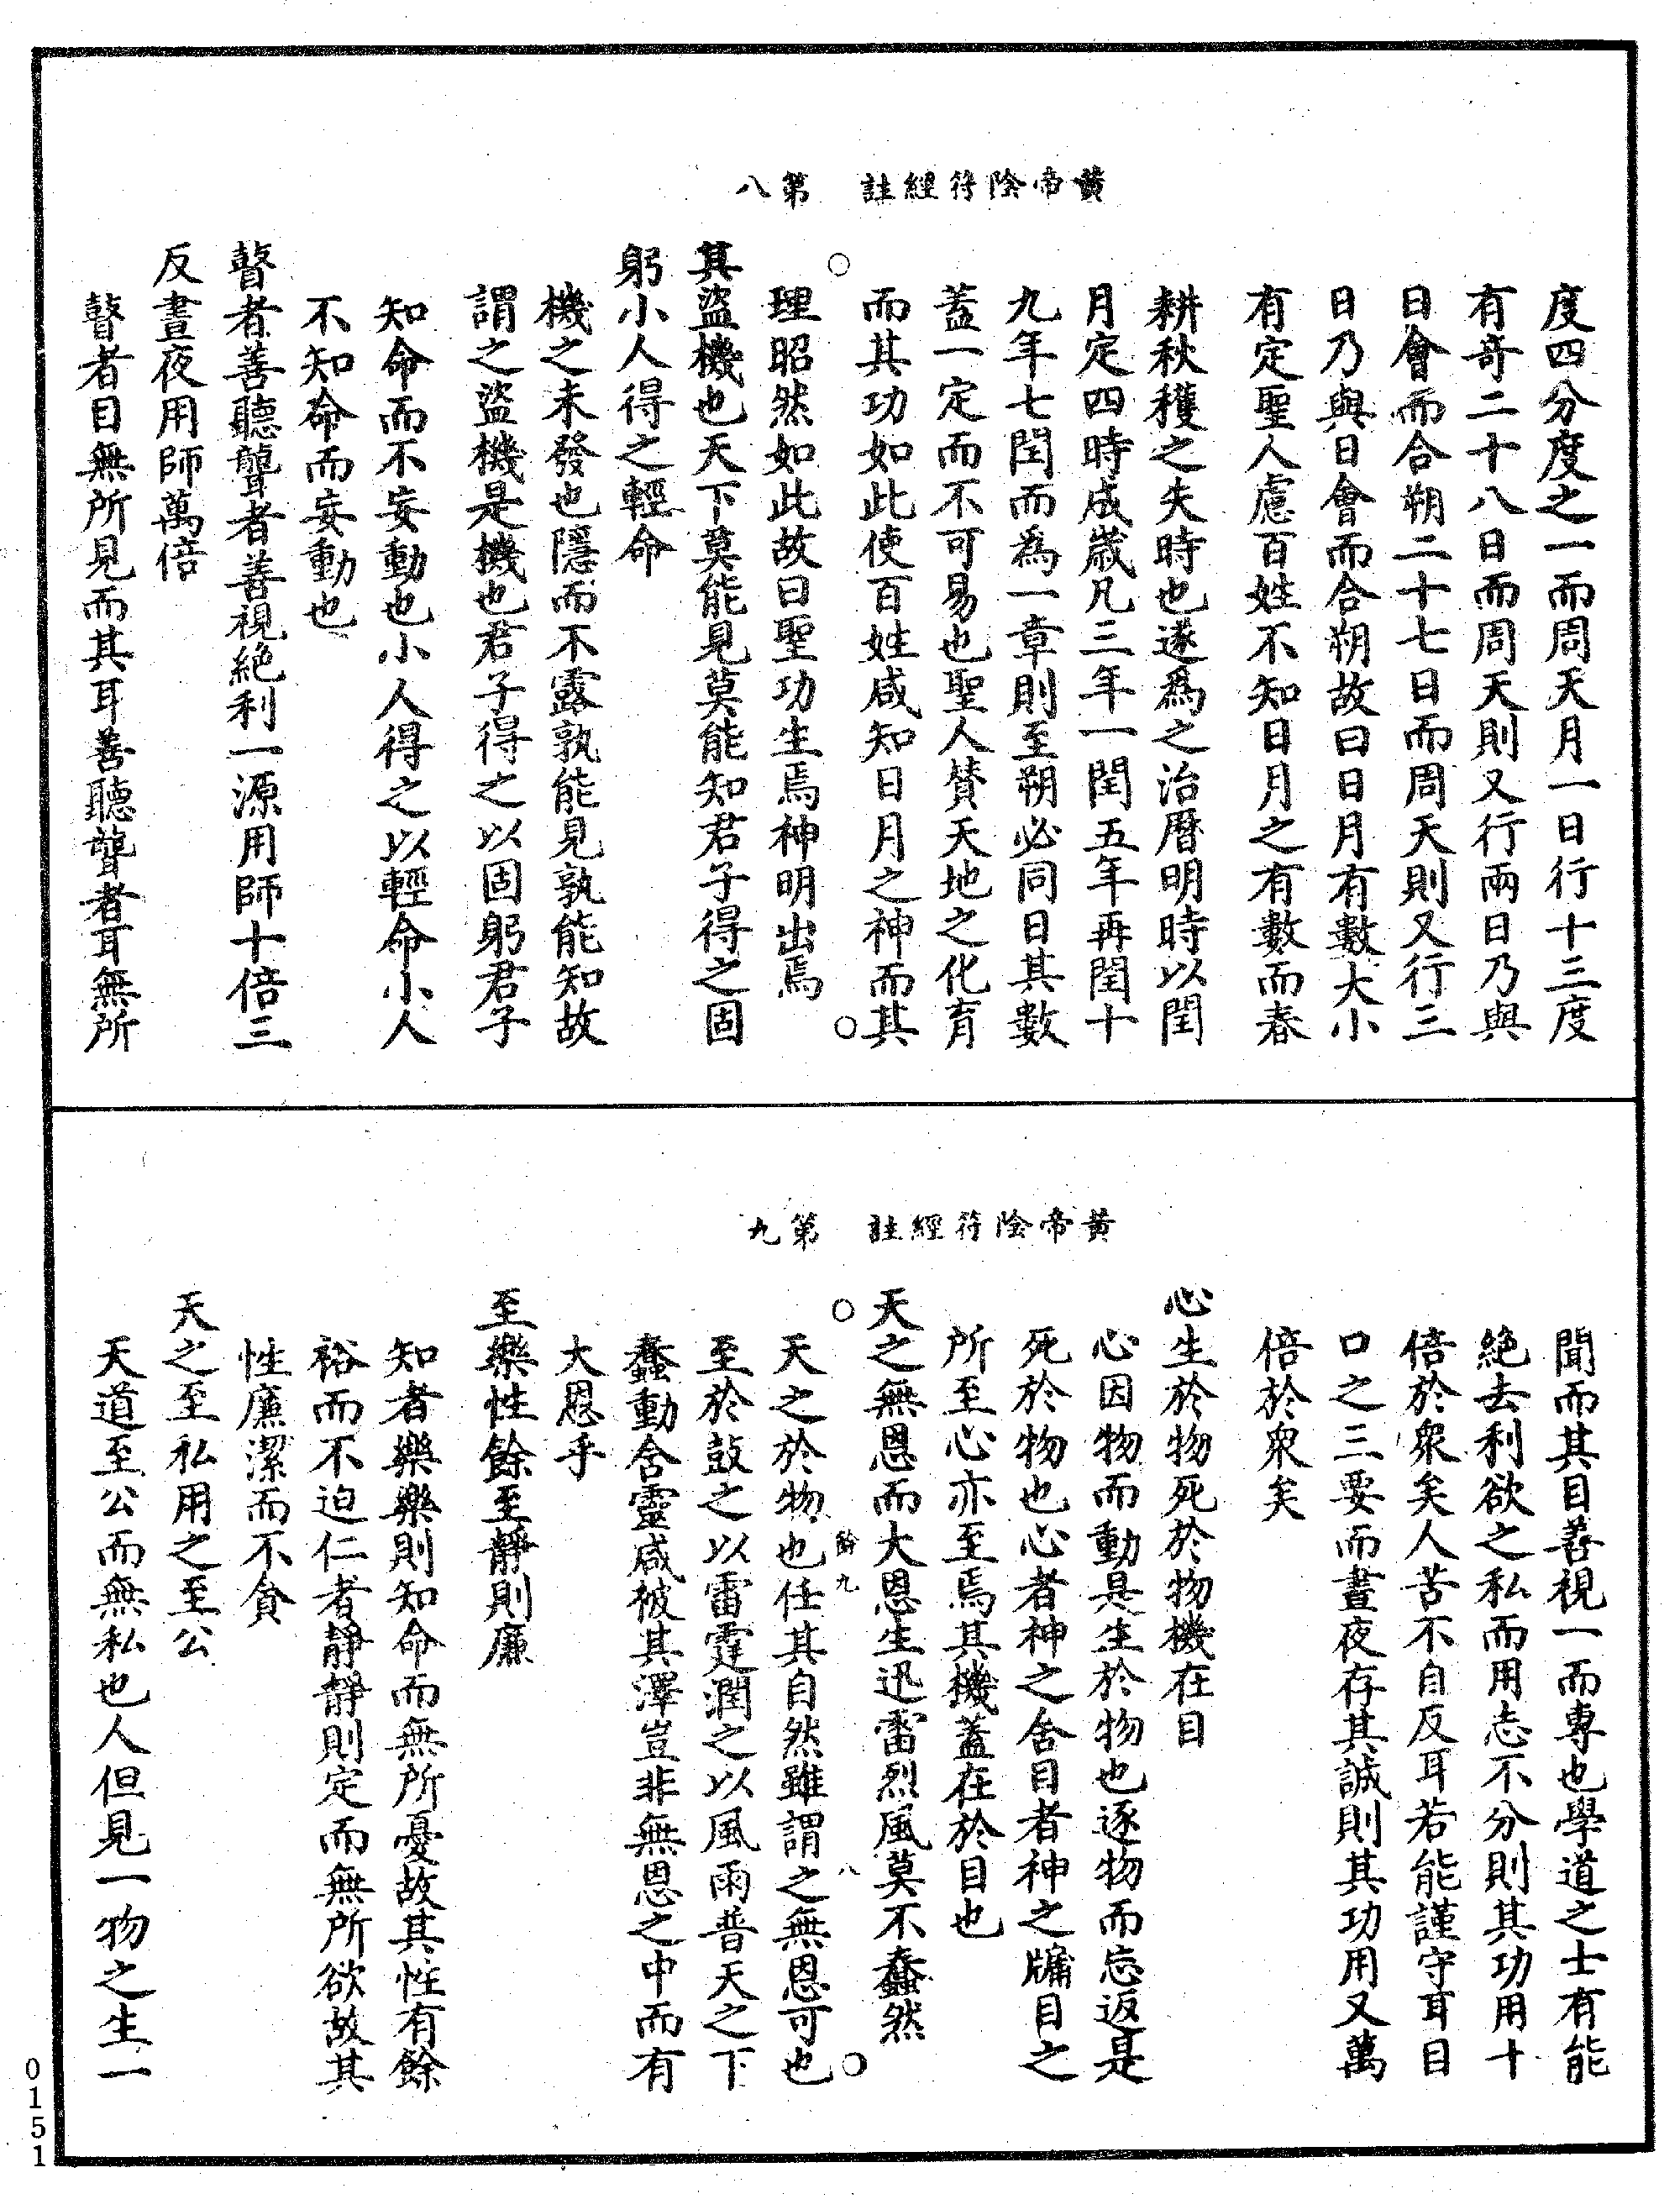 黃帝陰符經註　第八
度四分度之一而周天月一日行十三度
有奇二十八日而周天則又行兩日乃與
日會而合朔二十七日而周天則又行三
日乃與日會而合朔故曰日月有數大小
有定聖人慮百姓不知日月之有數而春
耕秋穫之失時也遂為之治曆明時以閏
月定四時成歲凡三年一閏五年再閏十
九年七閏而為一章則至朔必同日其數
蓋一定而不可易也聖人贊天地之化育
而其功如此使百姓咸知日月之神而其
理昭然如此故曰聖功生焉神明出焉
其盜機也天下莫能見莫能知君子得之固
躬小人得之輕命
機之未發也隱而不露孰能見孰能知故
謂之盜機是機也君子得之以固躬君子
知命而不妄動也小人得之以輕命小人
不知命而妄動也
瞽者善聽聾者善視絕利一源用師十倍三
反晝夜用師萬倍
瞽者目無所見而其耳善聽聾者耳無所
黃帝陰符經註　第九
聞而其目善視一而專也學道之士有能
絕去利欲之私而用志不分則其功用十
倍於衆矣人苦不自反耳若能謹守耳目
口之三要而晝夜存其誠則其功用又萬
倍於衆矣
心生於物死於物機在目
心因物而動是生於物也逐物而忘返是
死於物也心者神之舍目者神之牖目之
所至心亦至焉其機蓋在於目也
天之無恩而大恩生迅雷烈風莫不蠢然
餘九　八
天之於物也任其自然雖謂之無恩可也
至於鼓之以雷霆潤之以風雨普天之下
蠢動含靈咸被其澤豈非無恩之中而有
大恩乎
至樂性餘至靜則廉
知者樂樂則知命而無所憂故其性有餘
裕而不迫仁者靜靜則定而無所欲故其
性廉潔而不貪
天之至私用之至公
天道至公而無私也人但見一物之生一
0151